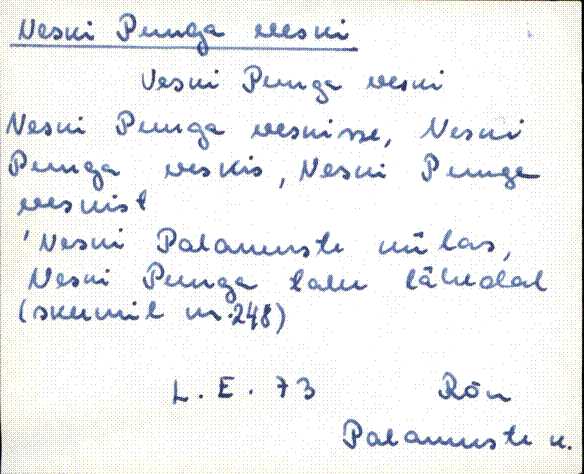 Veski Punga veski
Veski Punga veski
Veski Punga veskisse, Veski
Punga veskis, Veski Punga
veskist
'Veski Palamuste külas,
Veski Punga talu lähedal
(skeemil nr. 248)
L. E. 73 Rõu
Palamuste k.